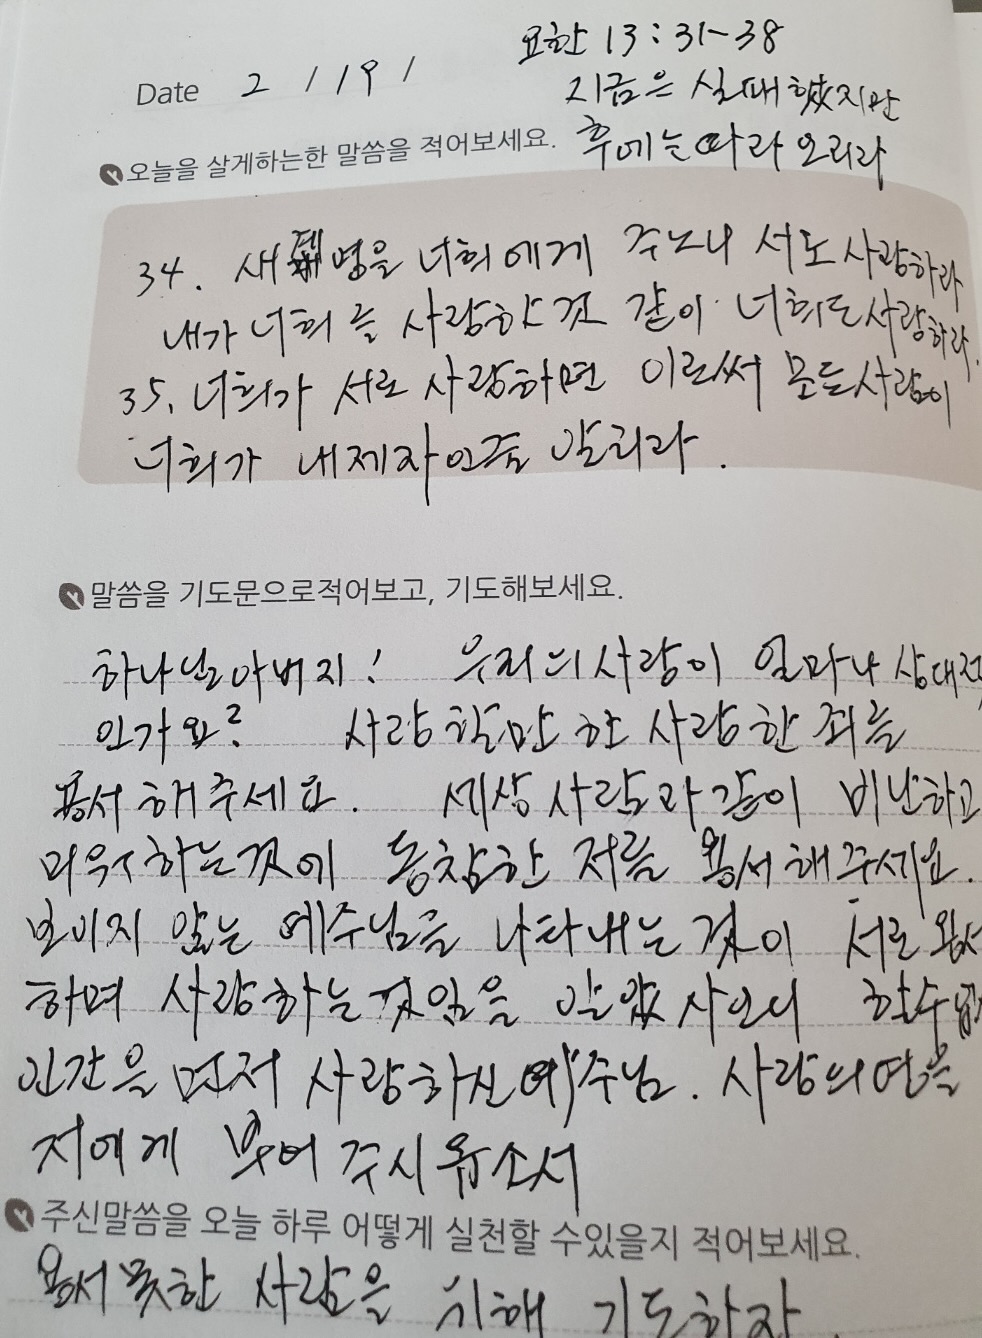 요한 13 : 31~38
Date 2 / 19 /
지금은 실패했지만
후에는 따라 오리라
오늘을 살게하는한 말씀을 적어보세요.
34. 새 계명을 너희에게 주노니 서로 사랑하라
내가 너희를 사랑한 것 같이 너희도 사랑하라.
35. 너희가 서로 사랑하면 이로써 모든사람이
너희가 내제자인줄 알리라.
말씀을 기도문으로적어보고, 기도해보세요.
하나님아버지! 우리의 사랑이 얼마나 상대적
인가요? 사랑할만 한 사람한 죄를
용서해주세요. 세상 사람과 같이 비난하고
미워하는것에 동참한 저를 용서해주세요.
보이지 않는 예수님을 나타내는 것이 서로 용서
하며 사랑하는것임을 알았사오니 할수없는
인간을 먼저 사랑하신 예수님. 사랑의 영을
저에게 부어 주시옵소서
주신말씀을 오늘 하루 어떻게 실천할 수있을지 적어보세요.
용서못한 사람을 위해 기도하자.